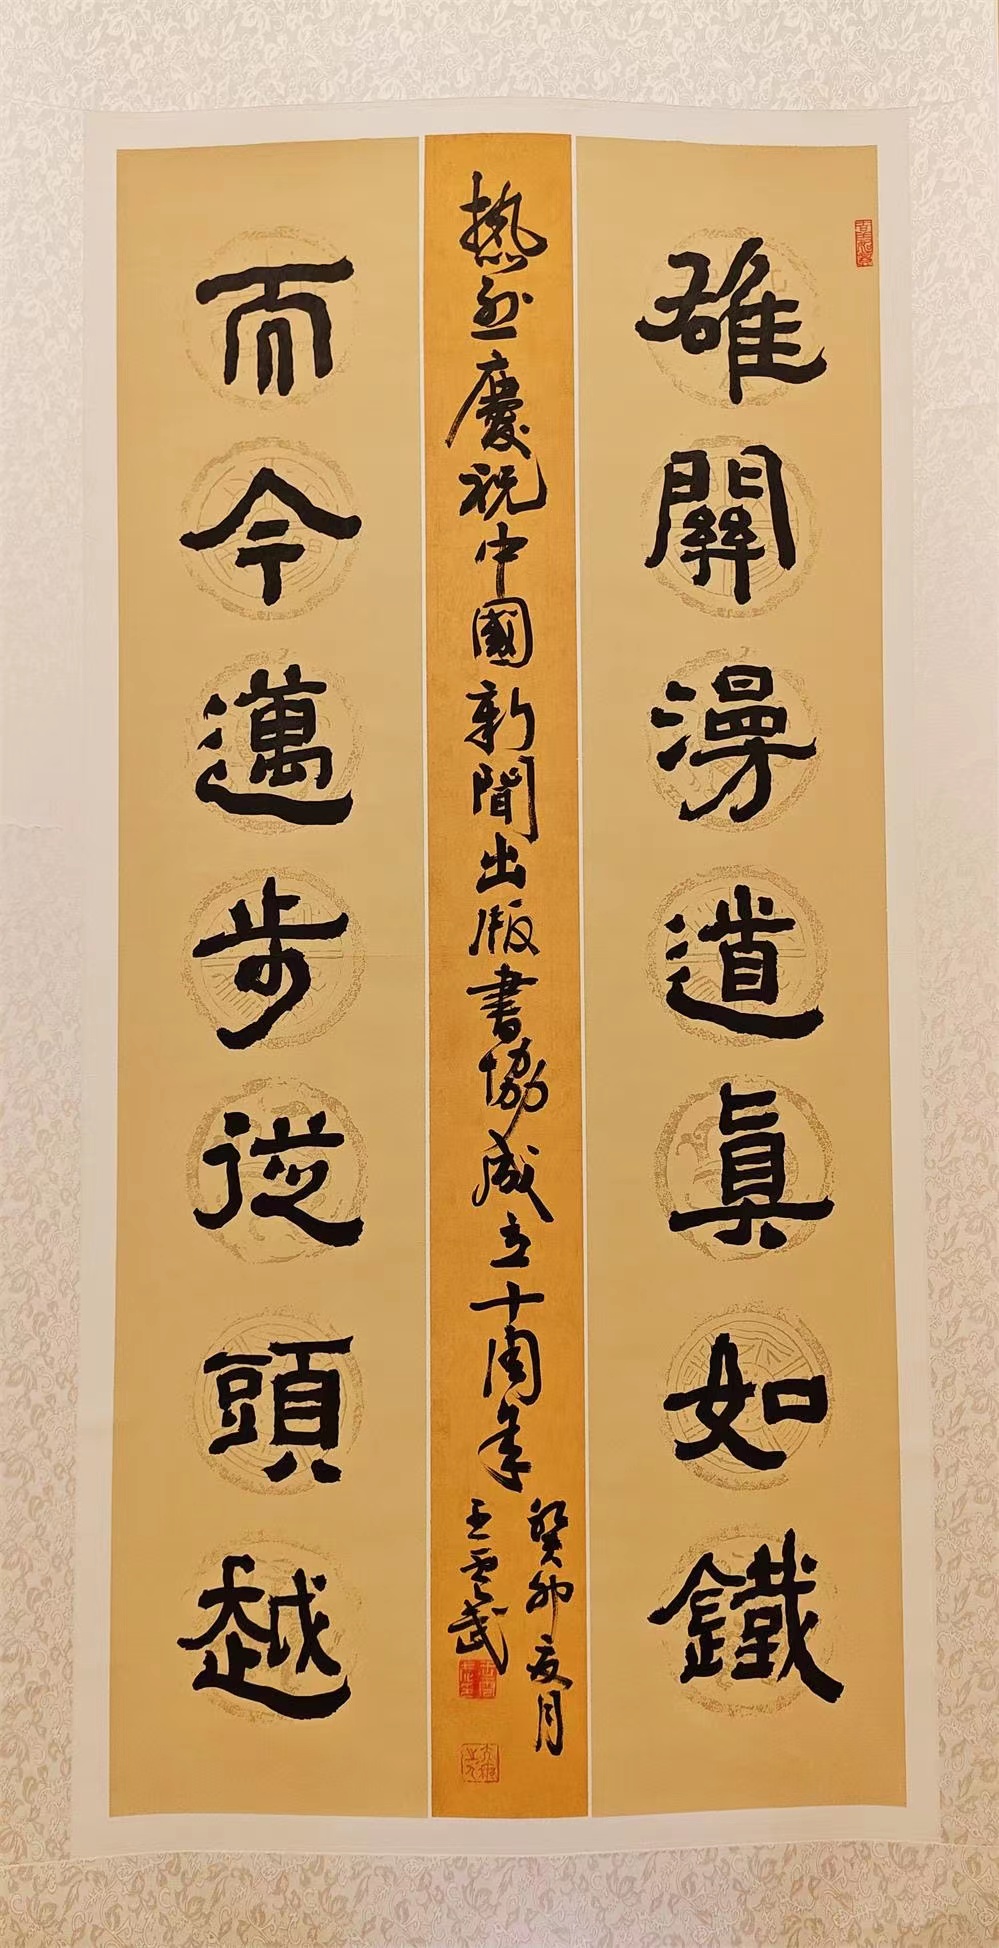 雄關漫道真如鐵
熱烈慶祝中國新聞出版書協成立十周年
癸卯夏月
王雲武
而今邁步從頭越